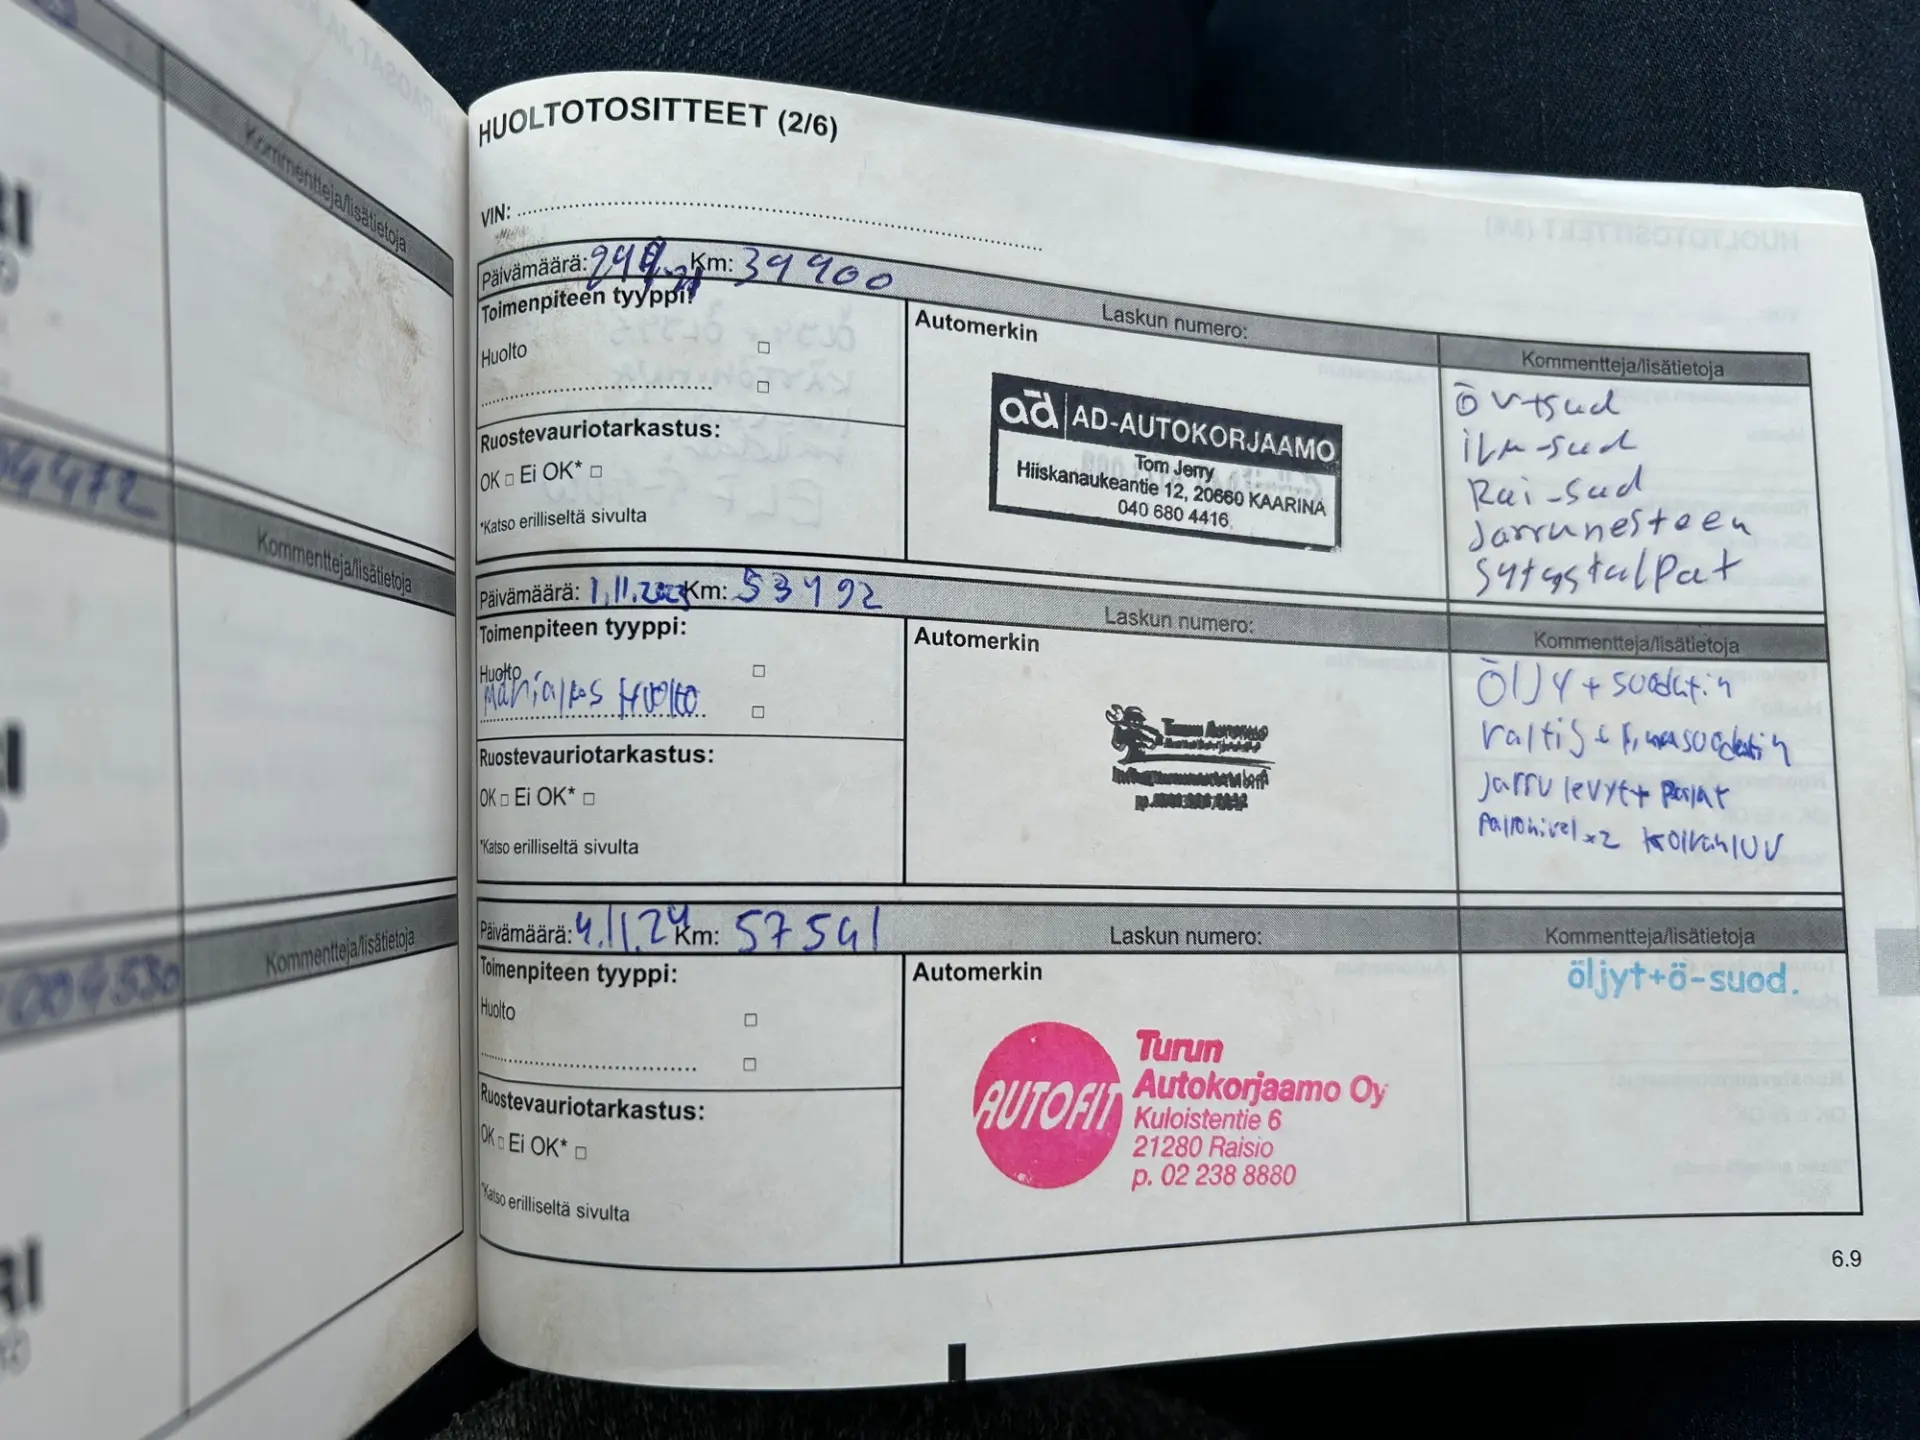 Kommentteja/lisätietoja
Kommentteja/lisätietoja
Kommentteja/lisätietoja
HUOLTOTOSITTEET (2/6)
VIN:
Päivämäärä: Km: 39900
Laskun numero:
Kommentteja/lisätietoja
Toimenpiteen tyyppi:
Huolto
Ruostevauriotarkastus:
OK □ Ei OK* □
*Katso erilliseltä sivulta
Automerkin
ad AD-AUTOKORJAAMO
Tom Jerry
Hiiskanaukeantie 12, 20660 KAARINA
040 680 4416
öv+sud
ilm-sud
Rai-sud
Jarrunesteen
sytystulpat
Päivämäärä: 1.11.2023 Km: 53492
Laskun numero:
Kommentteja/lisätietoja
Toimenpiteen tyyppi:
Huolto
Määräaikas Huolto
Ruostevauriotarkastus:
OK □ Ei OK* □
*Katso erilliseltä sivulta
Automerkin
ÖlJY + suodatin
raitis + ilmasuodatin
Jarru levyt + palat
pallonivel x2
Päivämäärä: 4.11.24 Km: 57541
Laskun numero:
Kommentteja/lisätietoja
Toimenpiteen tyyppi:
Huolto
Ruostevauriotarkastus:
OK □ Ei OK* □
*Katso erilliseltä sivulta
Automerkin
AUTOFIT
Turun
Autokorjaamo Oy
Kuloistentie 6
21280 Raisio
p. 02 238 8880
öljyt+ö-suod.
6.9